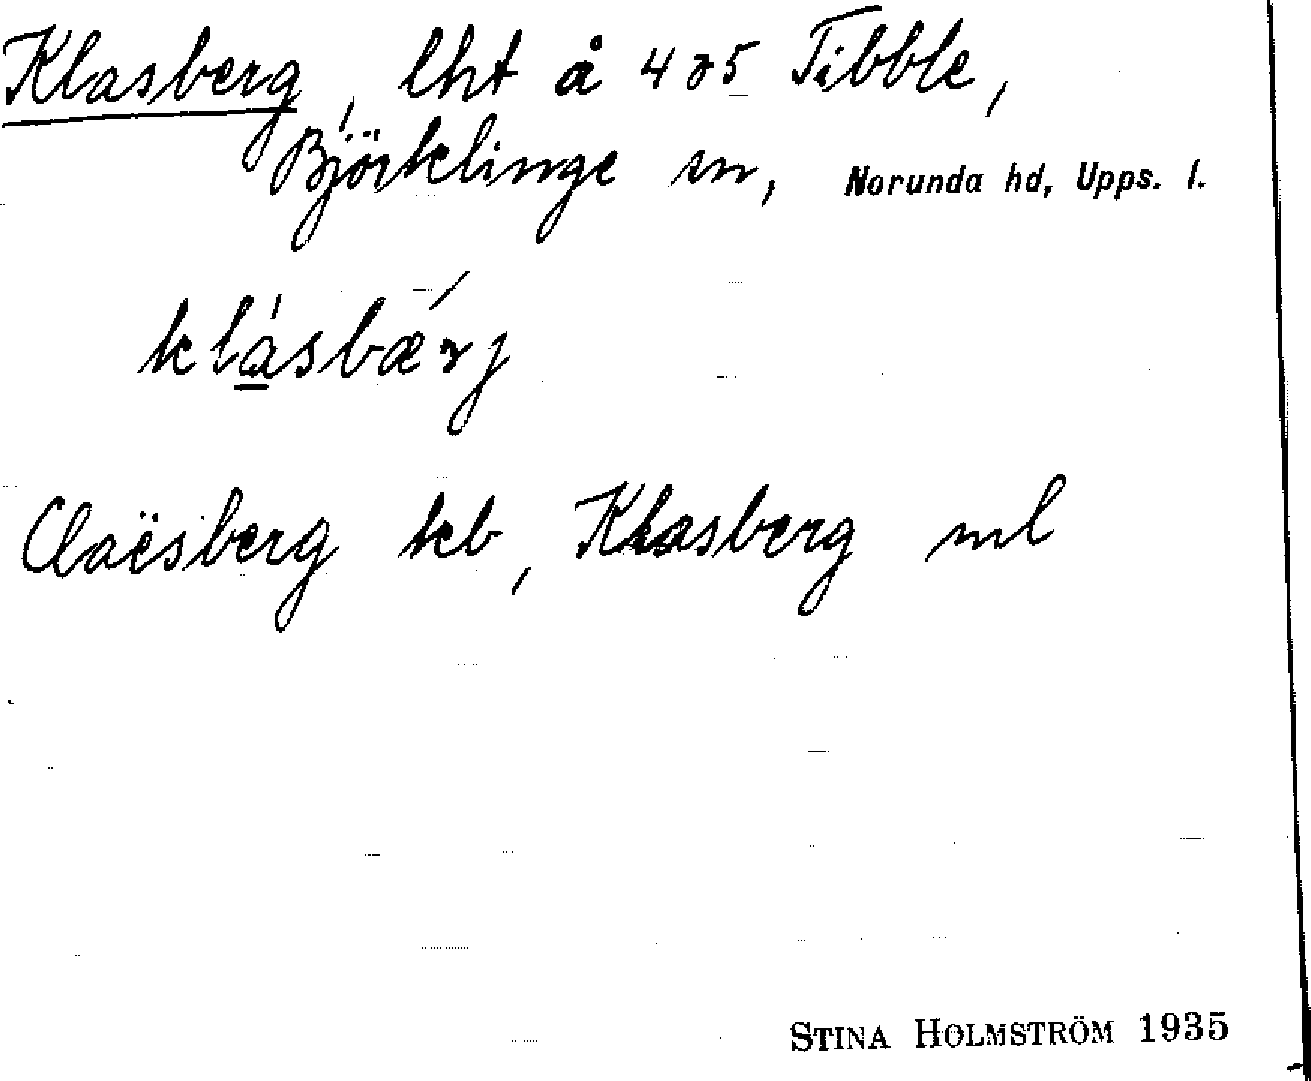 Klasberg, lht å 4 o 5 Tibble,
Björklinge sn, Norunda hd, Upps. l.
klásbǽrj
Claësberg kb, Klasberg ml
STINA HOLMSTRÖM 1935